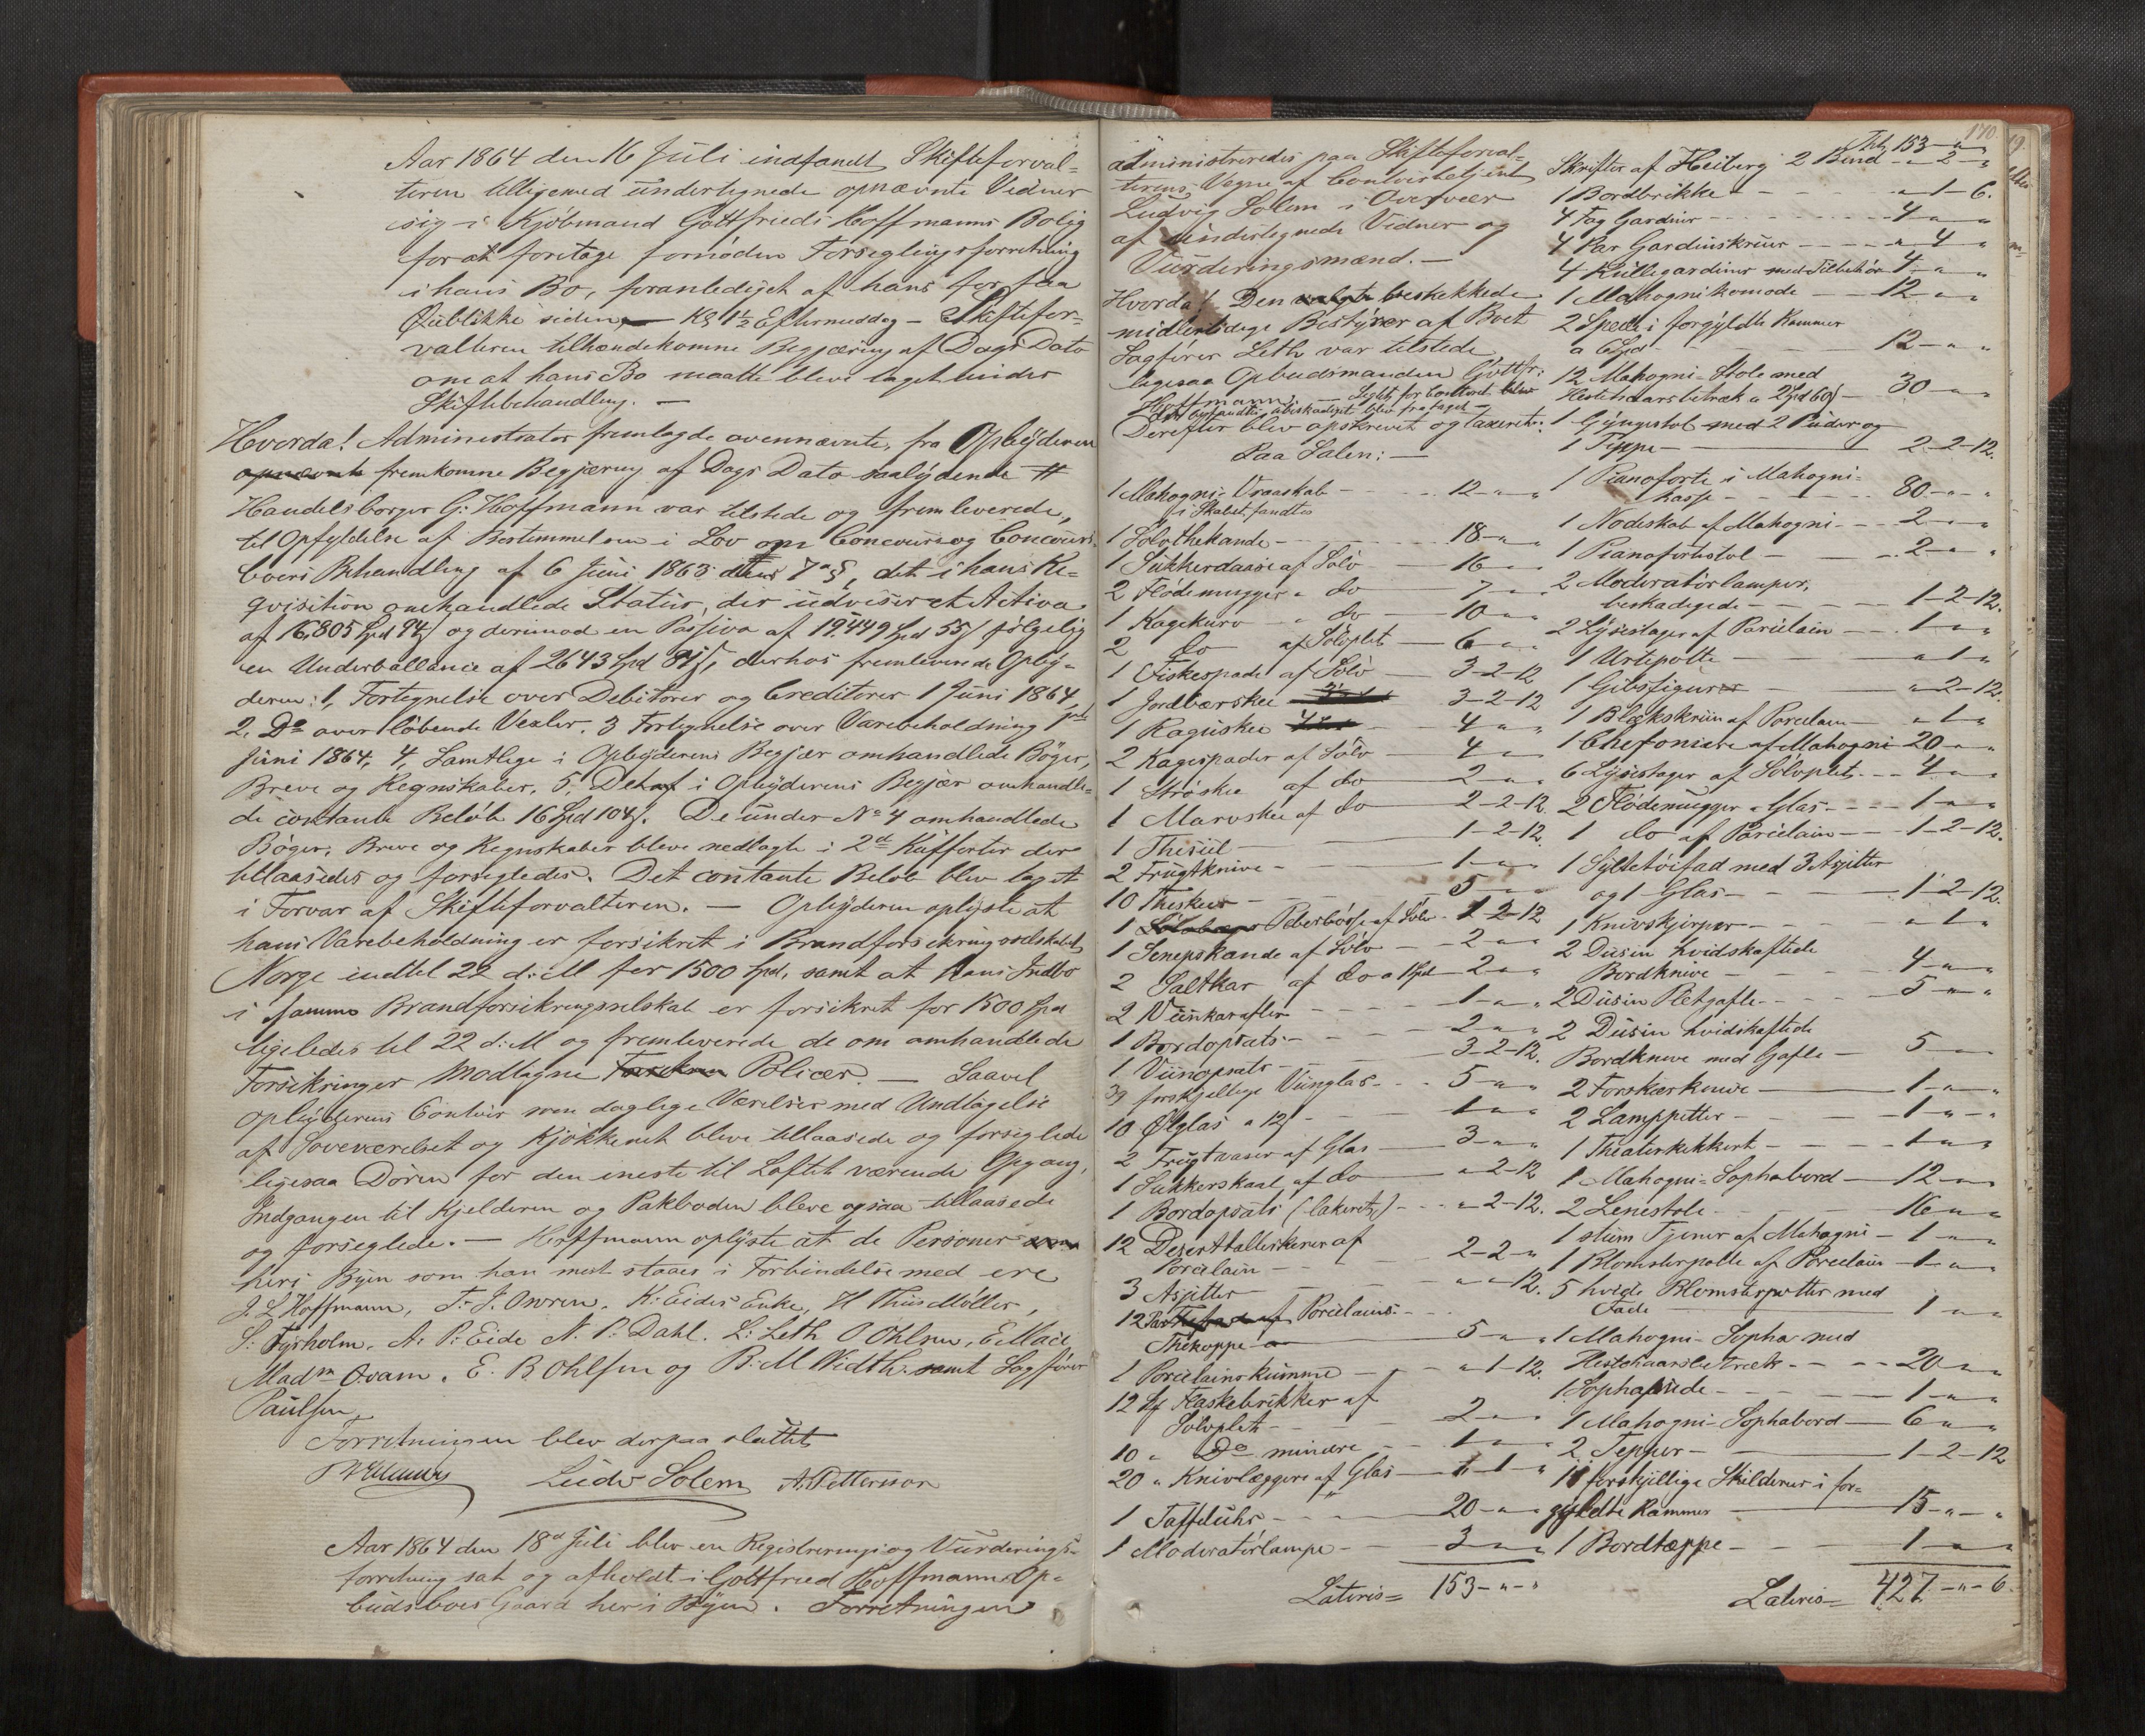 Aar 1864 den 16 Juli indfandt Skifteforval-
teren tilligemed undertegnede opnævnte Vidner
sig i Kjöbmand Gottfrieds Hoffmanns Bolig
for at foretage fornöden Forseglingsforretning
i hans Bo, foranlediget af hans for faa
Öieblikke siden Kl 1½ Eftermiddag Skiftefor-
valteren tilhændekomne Begjæring af Dags Dato
om at hans Bo maatte blive taget under
Skiftebehandling. —
Hvorda! Administrator fremlagde ovennævnte, fra Opbyderen
fremkomne Begjæring af Dags Dato saalydende #
Handelsborger G: Hoffmann var tilstede og fremleverede,
til Opfyldelse af Bestemmelsen i Lov om Concours og Concours-
boers Behandling af 6 Juni 1863 dens 7de §, det i hans Re-
qvisition omhandlede Status, der udviser et Activa
af 16,805 Spd 94 s og derimod en Passiva af 19.449 Spd 55 s fölgelig
en Underballance af 2643 Spd 81 s, derhos fremleverede Opby-
deren: 1, Fortegnelse over Debitorer og Creditorer 1 Juni 1864,
2, Do over löbende Vexler. 3 Fortegnelse over Varebeholdning 1ste
Juni 1864, 4, Samtlige i Opbyderens Begjær omhandlede Böger,
Breve og Regnskaber, 5, Det af i Opbyderens Begjær omhandle-
de contante Belöb 16 Spd 104 s. De under No 4 omhandlede
Böger, Breve og Regnskaber bleve nedlagte i 2de Kufferter der
tillaasedes og forsegledes. Det contante Belöb blev taget
i Forvar af Skifteforvalteren. — Opbyderen oplyste at
hans Varebeholdning er forsikret i Brandforsikringsselskabet
Norge indtil 22 d: M for 1500 Spd, samt at hans Indbo
i samme Brandforsikringsselskab er forsikret for 1500 Spd
ligeledes til 22 d: M og fremleverede de om omhandlede
Forsikringer modtagne Policer. — Saavel
Opbyderens Contoir som daglige Værelser med Undtagelse
af Soveværelset og Kjökkenet bleve tillaasede og forseglede
ligesaa Dören for den eneste til Loftet værende Opgang,
Indgangen til Kjelderen og Pakboden bleve ogsaa tillaasede
og forseglede. — Hoffmann oplyste at de Personer
her i Byen som han mest staaer i Forbindelse med ere
J. L Hoffmann, F. J. Owren, K: Eides Enke, H Thiis Möller,
S: Fyrholm, A: P: Eide N. P: Dahl. L: Leth O Ohlsen, E. Mack
Madm Qvam, E. B. Ohlsen og B: M Vidth samt Sagförer
Paulsen
Forretningen blev derpaa sluttet
Ludv Solem A. Pettersson
Aar 1864 den 18de Juli blev en Registrerings og Vurderings-
forretning sat og afholdt i Gottfried Hoffmanns Op-
budsboes Gaard her i Byen. Forretningen
administreredes paa Skifteforval-
terens Vegne af Contoirbetjent
Ludvig Solem i Overvær
af undertegnede Vidner og
Vurderingsmænd. —
Hvorda! Den beskikkede
midlertidige Bestyrer af Boet
Sagförer Leth var tilstede
ligesaa Opbudsmanden Gottfr:
Hoffmann. — Seglet for Contoret blev
Derefter blev opskrevet og taxeret:
Paa Salen: —
1 Mahogni-Vraaskab - - 12 - " - "
i Skabet fandtes
1 Sölvthekande - - 18 - " - "
1 Sukkerdaase af Sölv - 16 - " - "
2 Flödemugger " do - 7 - " - "
1 Kagekurv " do - 10 - " - "
2 do af Sölvplet - 6 - " - "
1 Fiskespade af Sölv - 3-2-12
1 Jordbærskee 3-2-12
1 Raguskee 4 - " - "
2 Kagespader af Sölv - 4 - " - "
1 Ströskee af do - 2 - " - "
1 Marvskee af do - 2-2-12.
1 Thesiil - 1-2-12.
2 Frugtknive - 1 - " - "
10 Theskeer - 5 - " - "
1 Peberbösse af Sölv - 1-2-12
1 Senepskande af Sölv - 2 - " - "
2 Saltkar af do a 1 Spd - 2 - " - "
2 Viinkarafler - 1 - " - "
1 Bordopsats - 2 - " - "
1 Viinopsats - 3-2-12.
39 forskjellige Viinglas - 5 - " - "
10 Ölglas a 12 s - 1 - " - "
2 Frugtvaser af Glas - 3 - " - "
1 Sukkerskaal af do - "-2-12
1 Bordopsats (lakeret) - "-2-12.
12 Deserttallerkener af
Porcelain - 2-2-"
3 Asjetter - "-"-12.
12 Par Porcelains-
Thekopper - 5 - " - "
1 Porcelainskumme - "-1-12.
12 St Flaskebrikker af
Sölvplet - 2 - " - "
10 " Do mindre - 1 - " - "
20 " Knivlæggere af Glas - 1 - "
1 Taffeluhr - 20 - " - "
1 Moderatörlampe - 3 - " - "
Lateris = 153 - " - "
170
Trsp 153 - " - "
Skrifter af Heiberg 2 Bind - "-2-"
1 Bordbrikke - "-1-6.
4 Fag Gardiner - 4 - " - "
4 Par Gardinskruer - "-4-"
4 Rullegardiner med Tilbehör 4 - " - "
1 Mahognikomode - 12 - " - "
2 Speile i forgyldte Rammer
a 6 Spd - 12 - " - "
12 Mahogni-Stole med
Hestehaarsbetræk a 2 Spd 60 s - 30 - " - "
1 Gyngestol med 2 Puder og
1 Teppe - 2-2-12.
1 Pianoforte i Mahogni-
kasse - 80 - " - "
1 Nodeskab af Mahogni - 2 - " - "
1 Pianofortestol - 2 - " - "
2 Moderatörlamper,
beskadigede - 1-2-12.
2 Lysestager af Porcelain - 1 - " - "
1 Urtepotte - "-1-"
1 Gibsfigur - "-2-12.
1 Blækskriin af Porcelain - "-1-"
1 Chefoniere af Mahogni 20 - " - "
6 Lysestager af Sölvplet - 4 - " - "
2 Flödemugger " Glas - 1 - " - "
1 do af Porcelain - 1-2-12.
1 Syltetöifad med 3 Asjetter
og 1 Glas - 1-2-12.
1 Knivskjerper - "-1-"
2 Dusin hvidskaftede
Bordknive - 4 - " - "
2 Dusin Pletgafle - 5 - " - "
2 Dusin hvidskaftede
Bordknive med Gafle - 5 - " - "
2 Forskærknive - 1 - " - "
2 Lamppetter - 1 - " - "
1 Theaterkikkert - 1 - " - "
1 Mahogni-Sophabord - 12 - " - "
2 Lenestole - 16 - " - "
1 stum Tjener af Mahogni - 1 - " - "
1 Blomsterpotte af Porcelain - 1 - " - "
5 hvide Blomsterpotter med
Fade - 1 - " - "
1 Mahogni-Sopha med
Hestehaarsbetræk - 20 - " - "
1 Sophapude - 1 - " - "
1 Mahogni-Sophabord - 6 - " - "
2 Tepper - 1-2-12
11 forskjellige Skilderier i for-
gyldte Rammer - 15 - " - "
1 Bordtæppe - 1 - " - "
Lateris = 427 - " - 6.